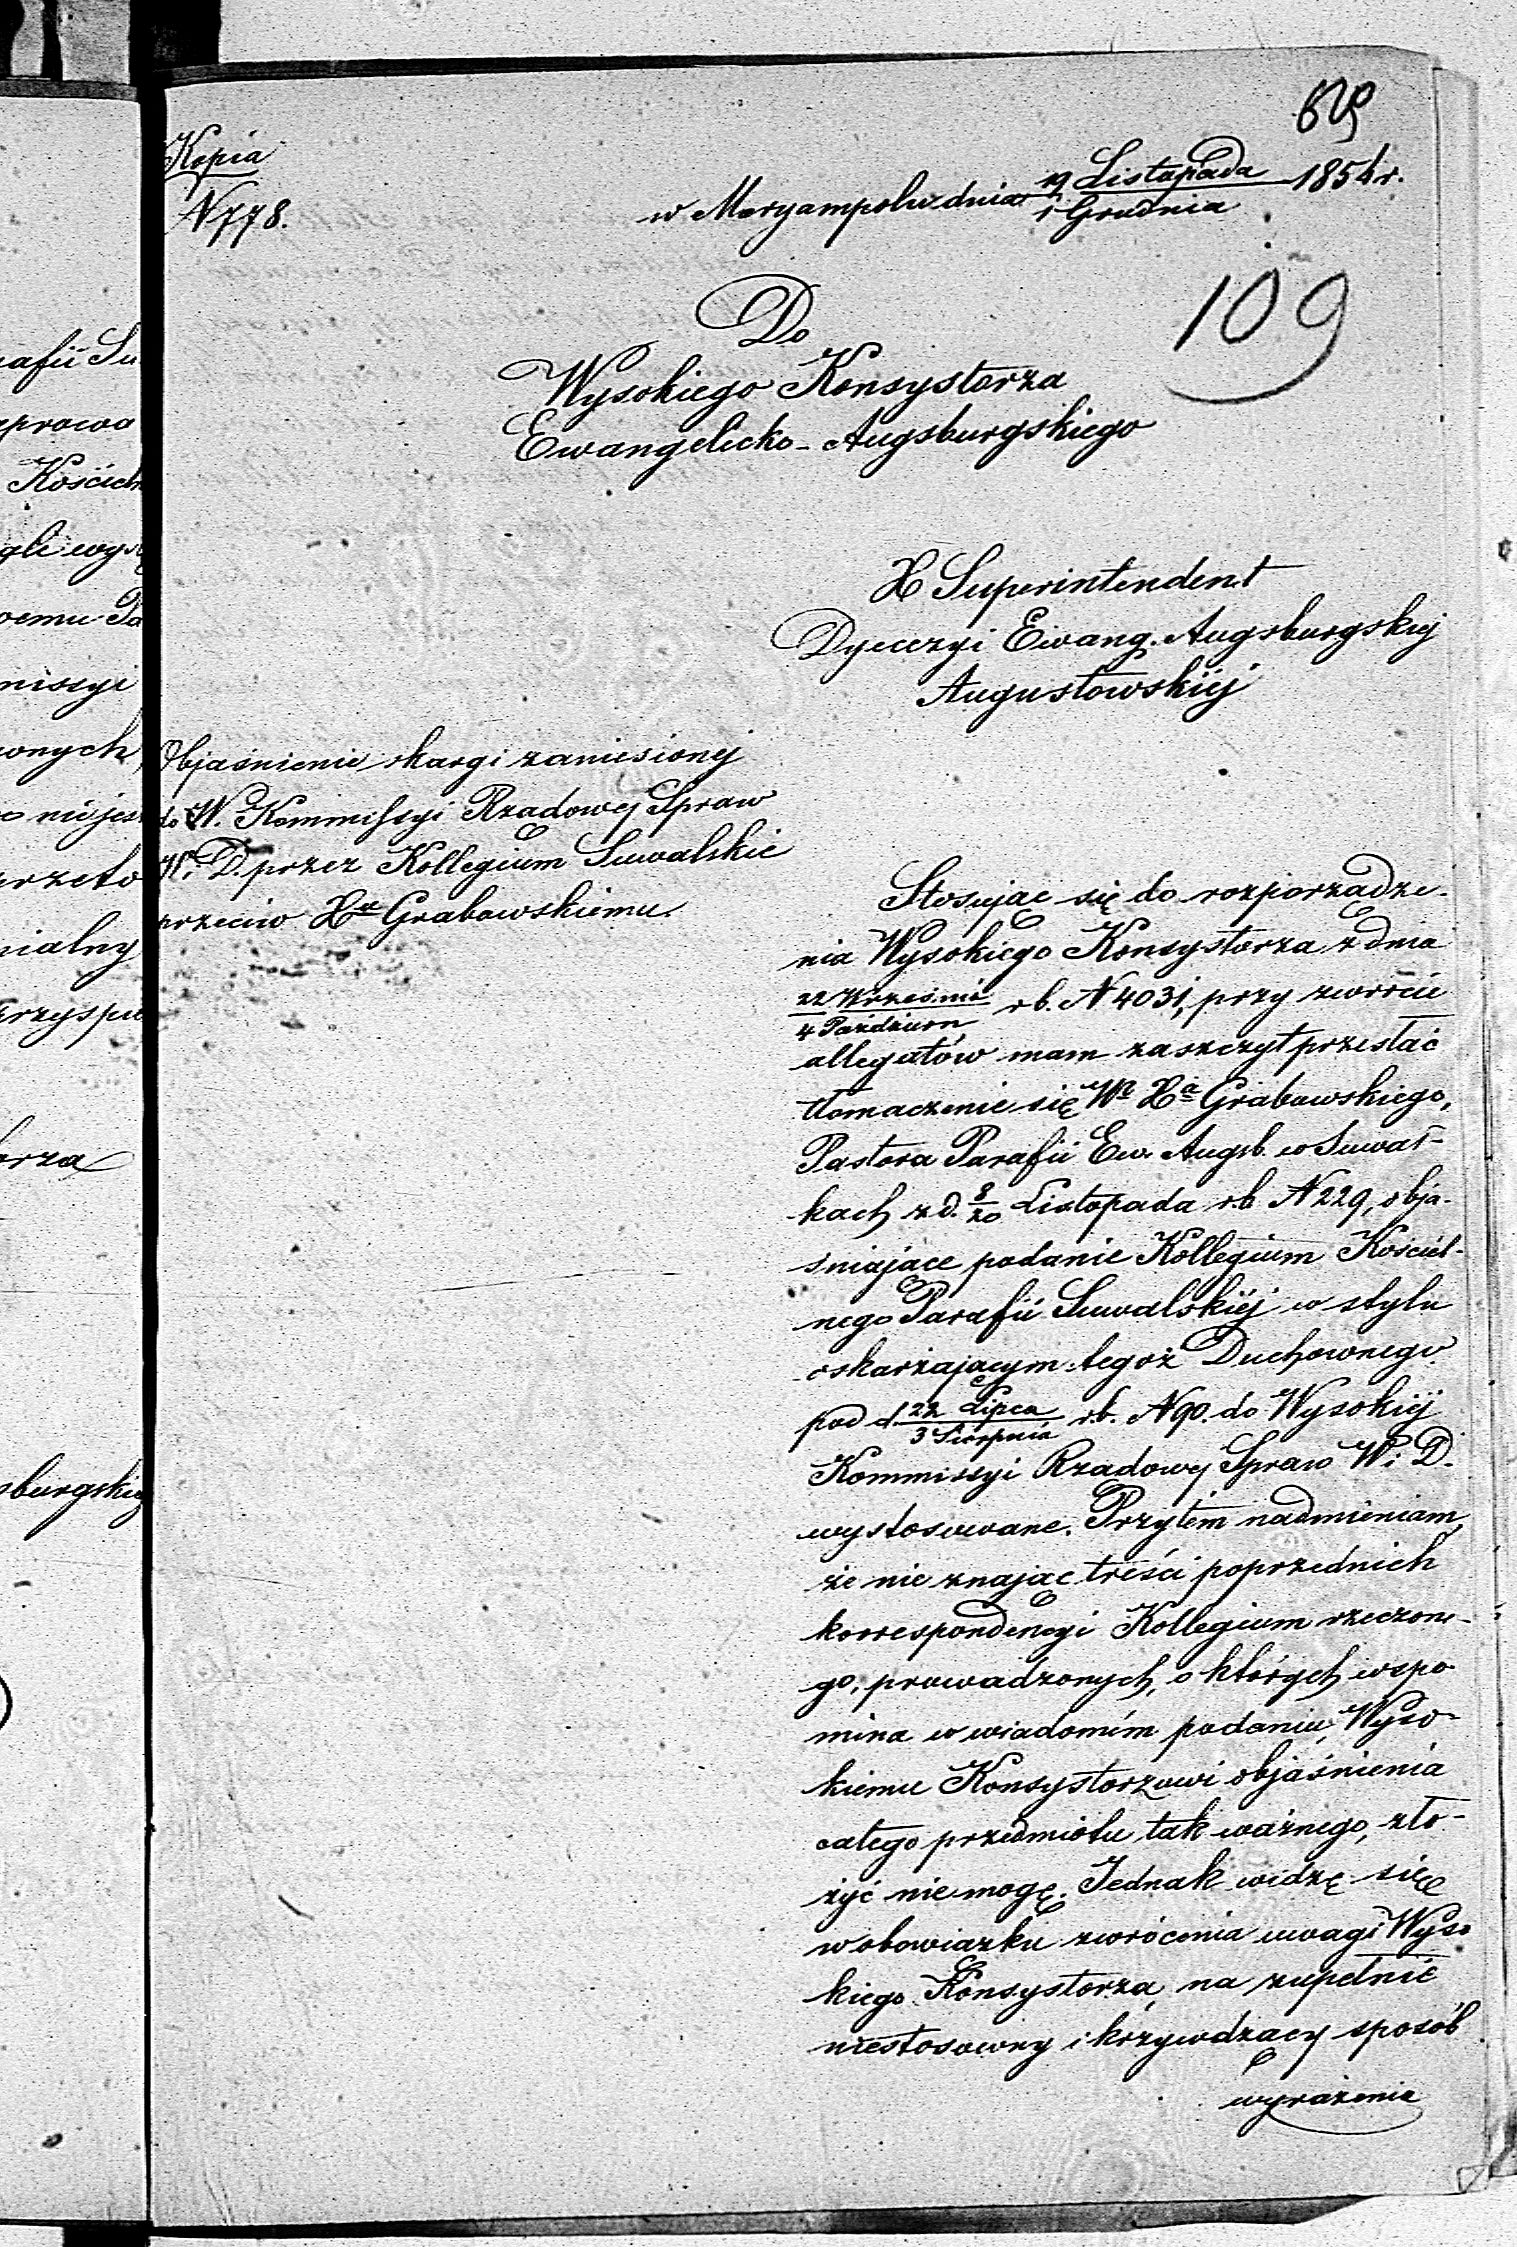 Kopia
N 778.
w Maryampolu dnia 19 Listopada / 1 Grudnia 1854 r.
109
Do
Wysokiego Konsystorza
Ewangelicko-Augsburgskiego
X Superintendent
Dyecezyi Ewang. Augsburgskiej
Augustowskiej
Objaśnienie skargi zaniesionej
do W. Kommissyi Rządowej Spraw
W. D. przez Kollegium Suwalskie
przeciw Xu Grabowskiemu.
Stosując się do rozporządze-
nia Wysokiego Konsystorza z dnia
22 Wrześnie / 4 Paździer rb. N 4031, przy zwrocie
allegatów mam zaszczyt przesłać
tłomaczenie się Wo Xa Grabowskiego,
Pastora Parafii Ew. Augsb. w Suwał-
kach z d. 8/20 Listopada r.b. N 229, obja-
śniające podanie Kollegium Kościel-
nego Parafii Suwalskiéj w stylu
oskarżającym tegoż Duchownego
pod d. 22 Lipca / 3 Sierpnia r.b. N 90. do Wysokiéj
Kommissyi Rządowej Spraw W. i D.
wystosowane. Przytém nadmieniam,
że nie znając treści poprzednich
korrespondencyi Kollegium rzeczone-
go, prowadzonych, o których wspo-
mina w wiadomém podaniu, Wyso-
kiemu Konsystorzowi objaśnienia
całego przedmiotu tak ważnego, zło-
żyć nie mogę. Jednak widzę się
w obowiązku zwrócenia uwagi Wyso
kiego Konsystorza, na zupełnie
niestosowny i krzywdzący sposób
wyrażenia
rafii Su
Kościeln
missyi
onych
przeto
orza
sburgskiej